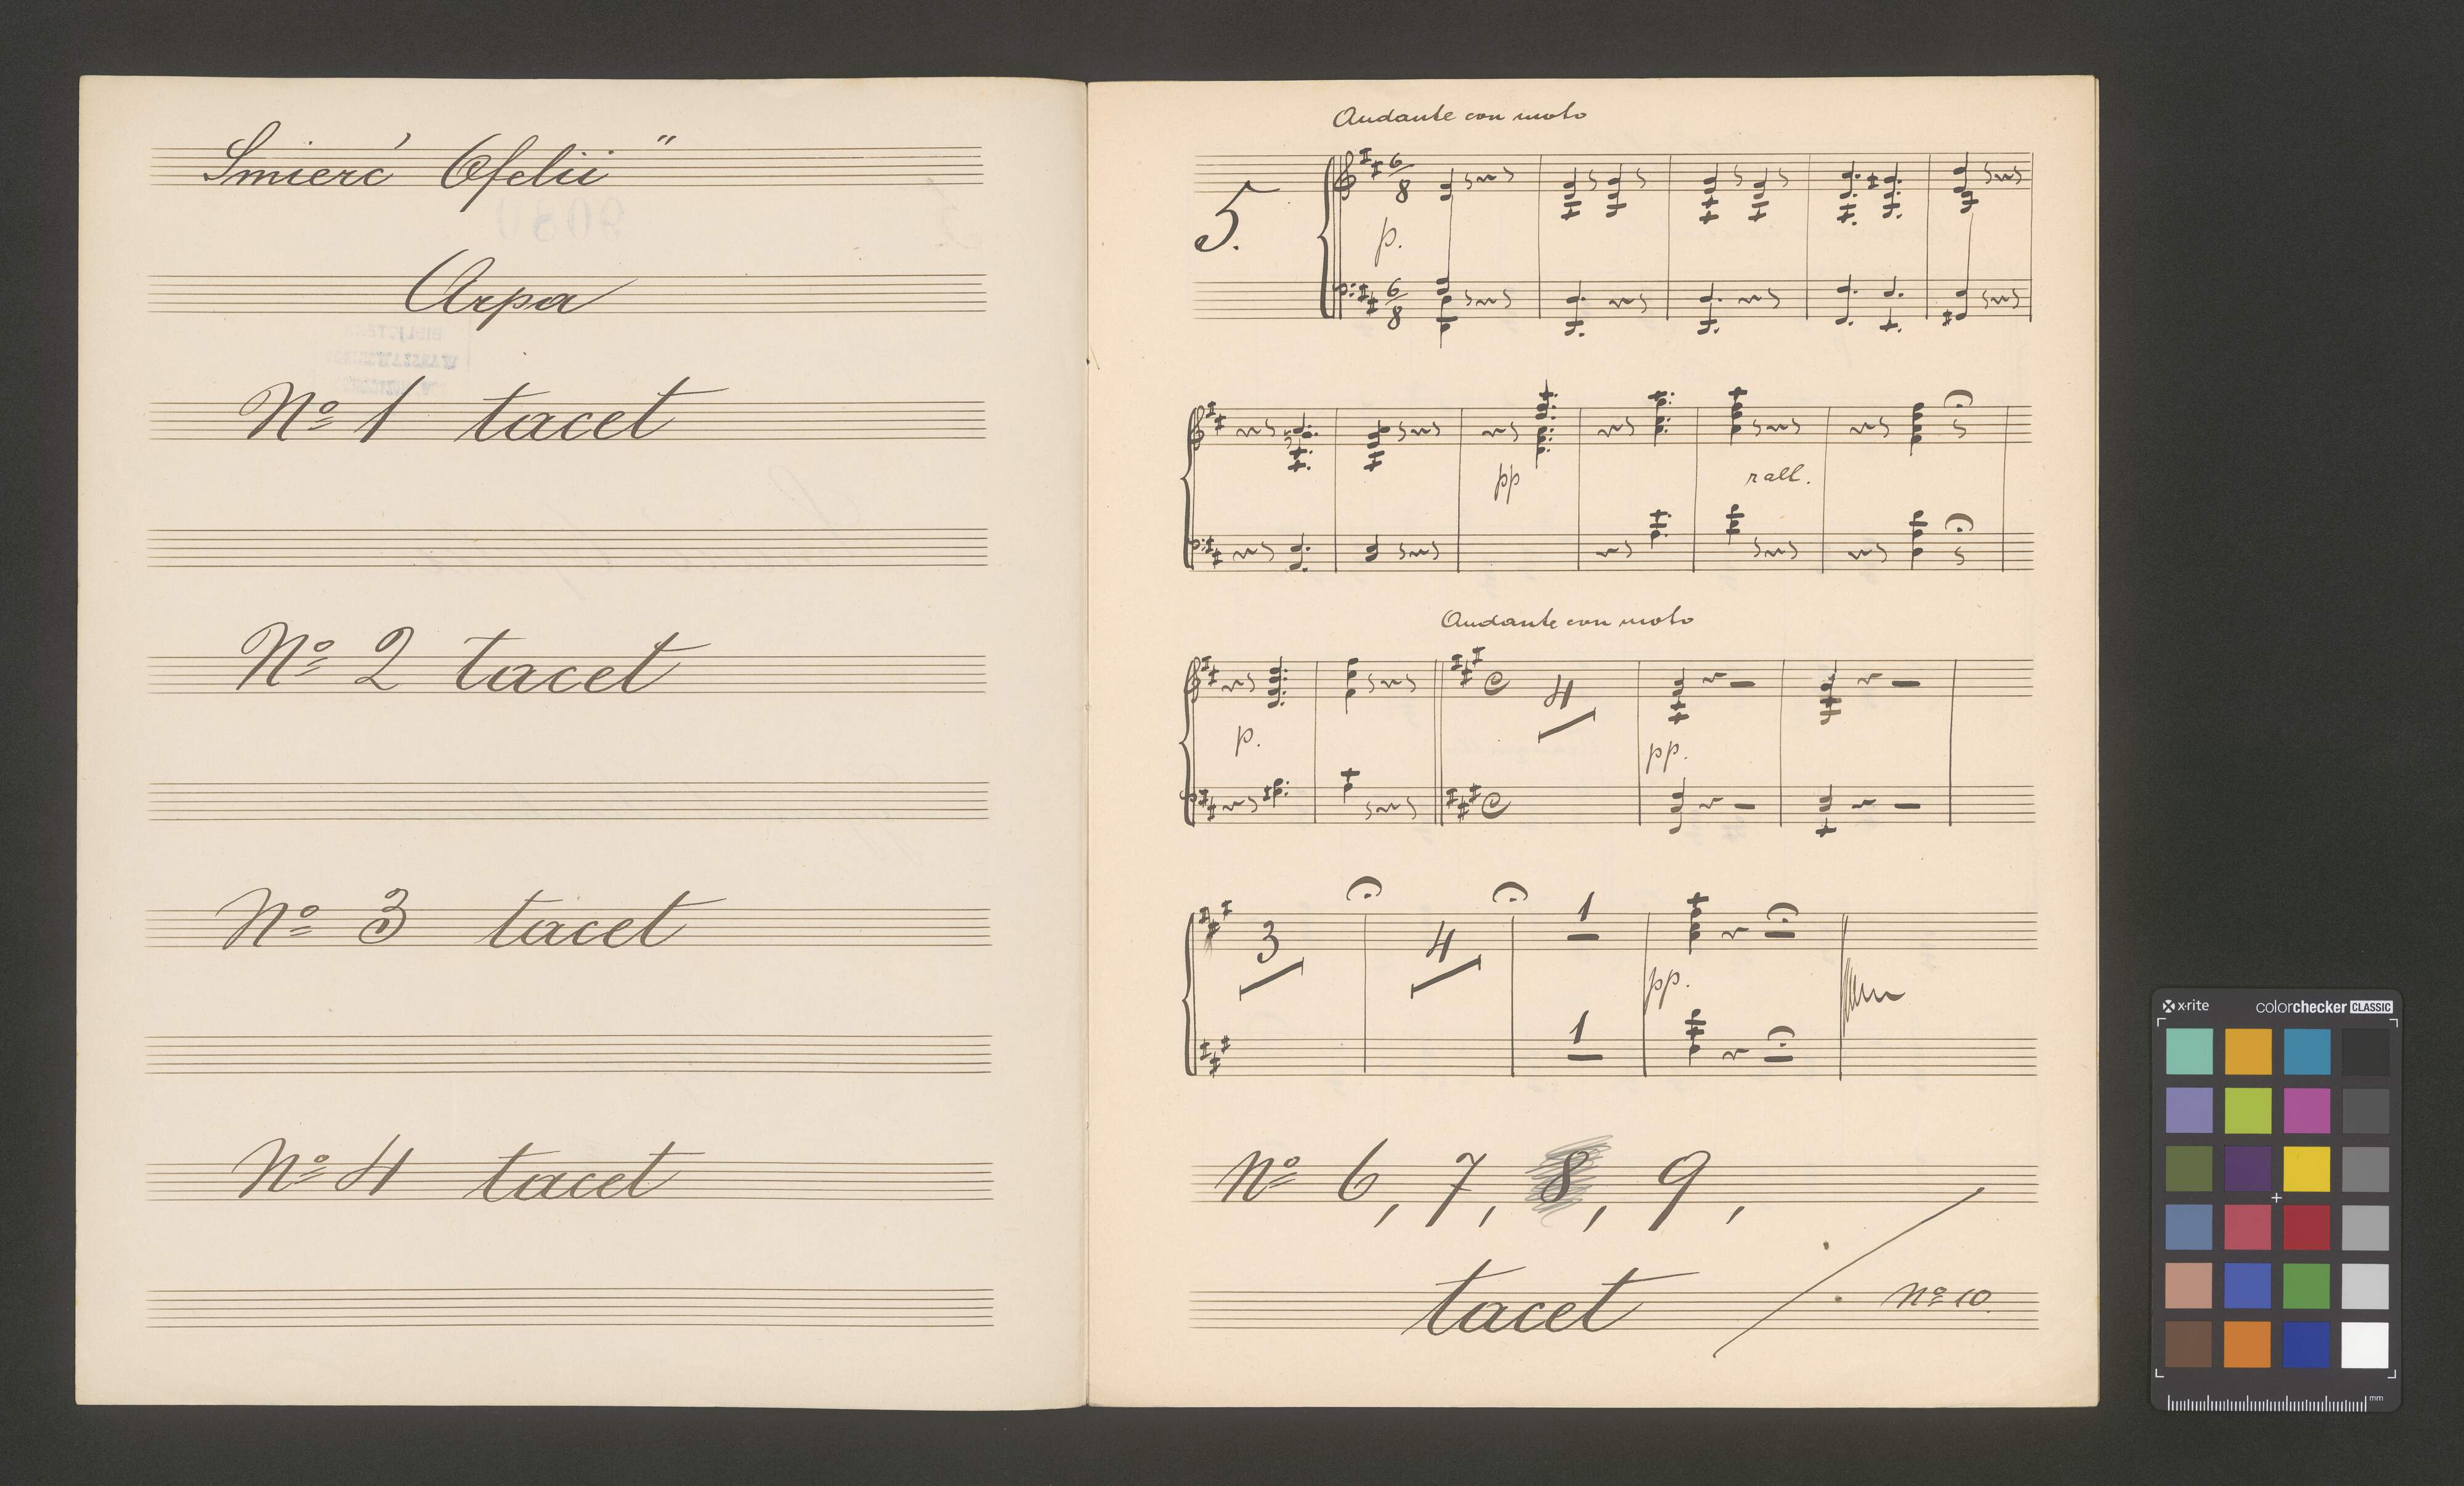 Śmierć Ofelii"
Arpa
No 1 tacet
No 2 tacet
No 3 tacet
No 4 tacet
Andante con moto
5.
6
8
p.
6
8
pp
rall.
Andante con moto
p.
4
pp.
3
4
1
pp.
1
No 6, 7, 8, 9,
tacet
No 10.
x-rite
colorchecker CLASSIC
mm